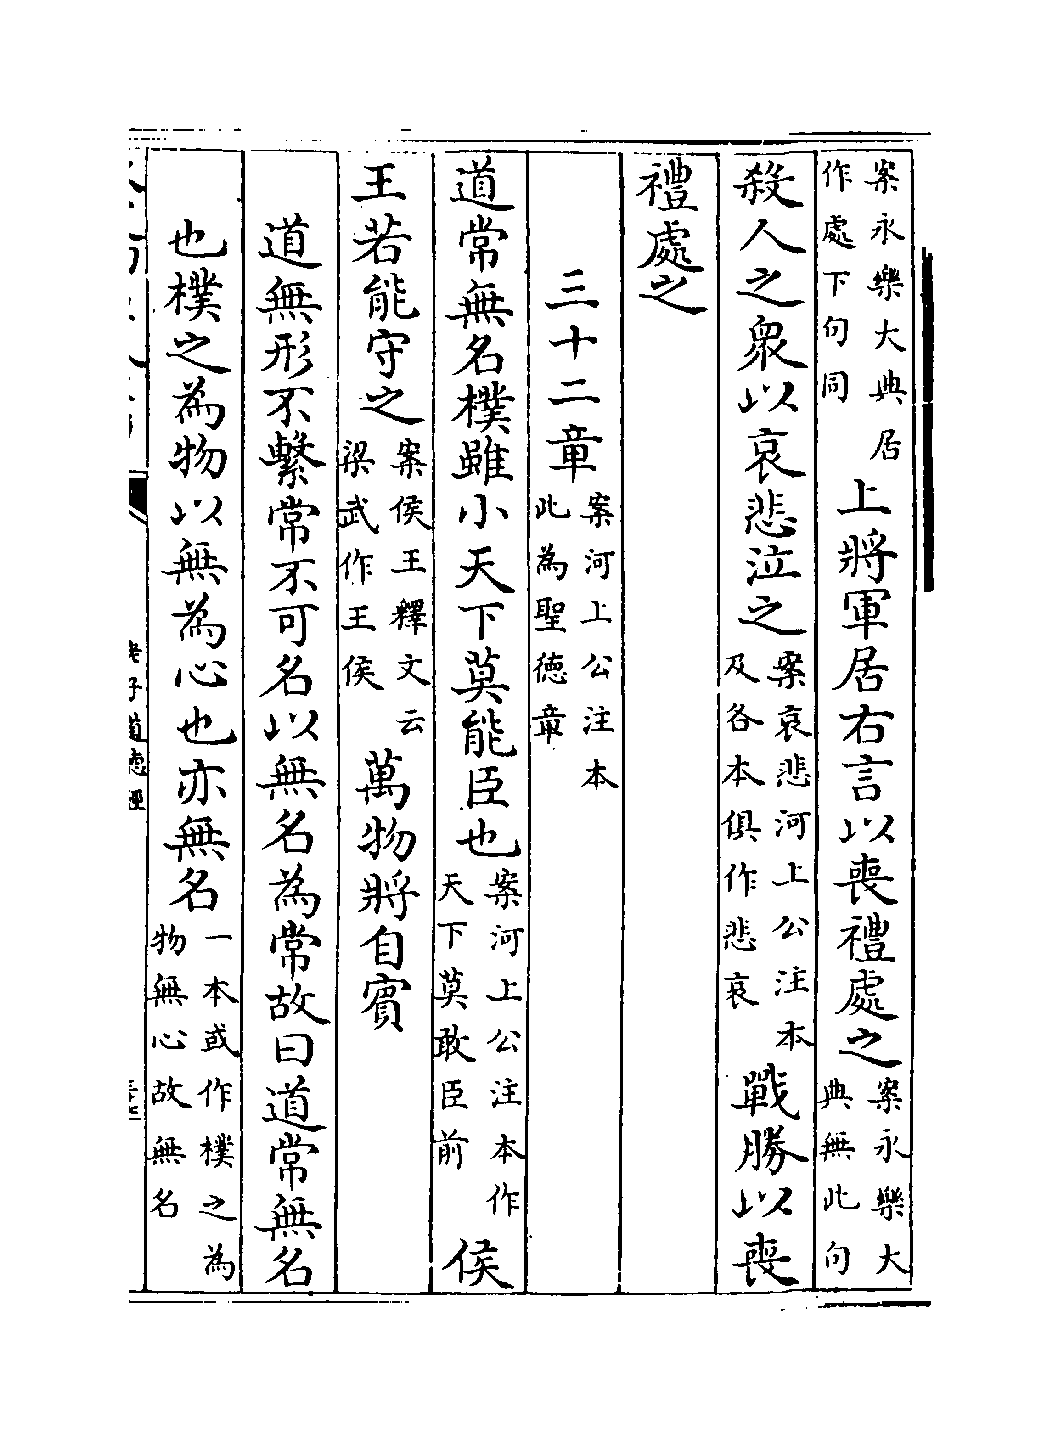 案永樂大典居
作處下句同
上將軍居右言以喪禮處之
案永樂大
典無此句
殺人之衆以哀悲泣之
案哀悲河上公注本
及各本俱作悲哀
戰勝以喪
禮處之
三十二章
案河上公注本
此為聖德章
道常無名樸雖小天下莫能臣也
案河上公注本作
天下莫敢臣前
侯
王若能守之
案侯王釋文云
梁武作王侯
萬物將自賓
道無形不繫常不可名以無名為常故曰道常無名
也樸之為物以無為心也亦無名
一本或作樸之為
物無心故無名
老子道德經